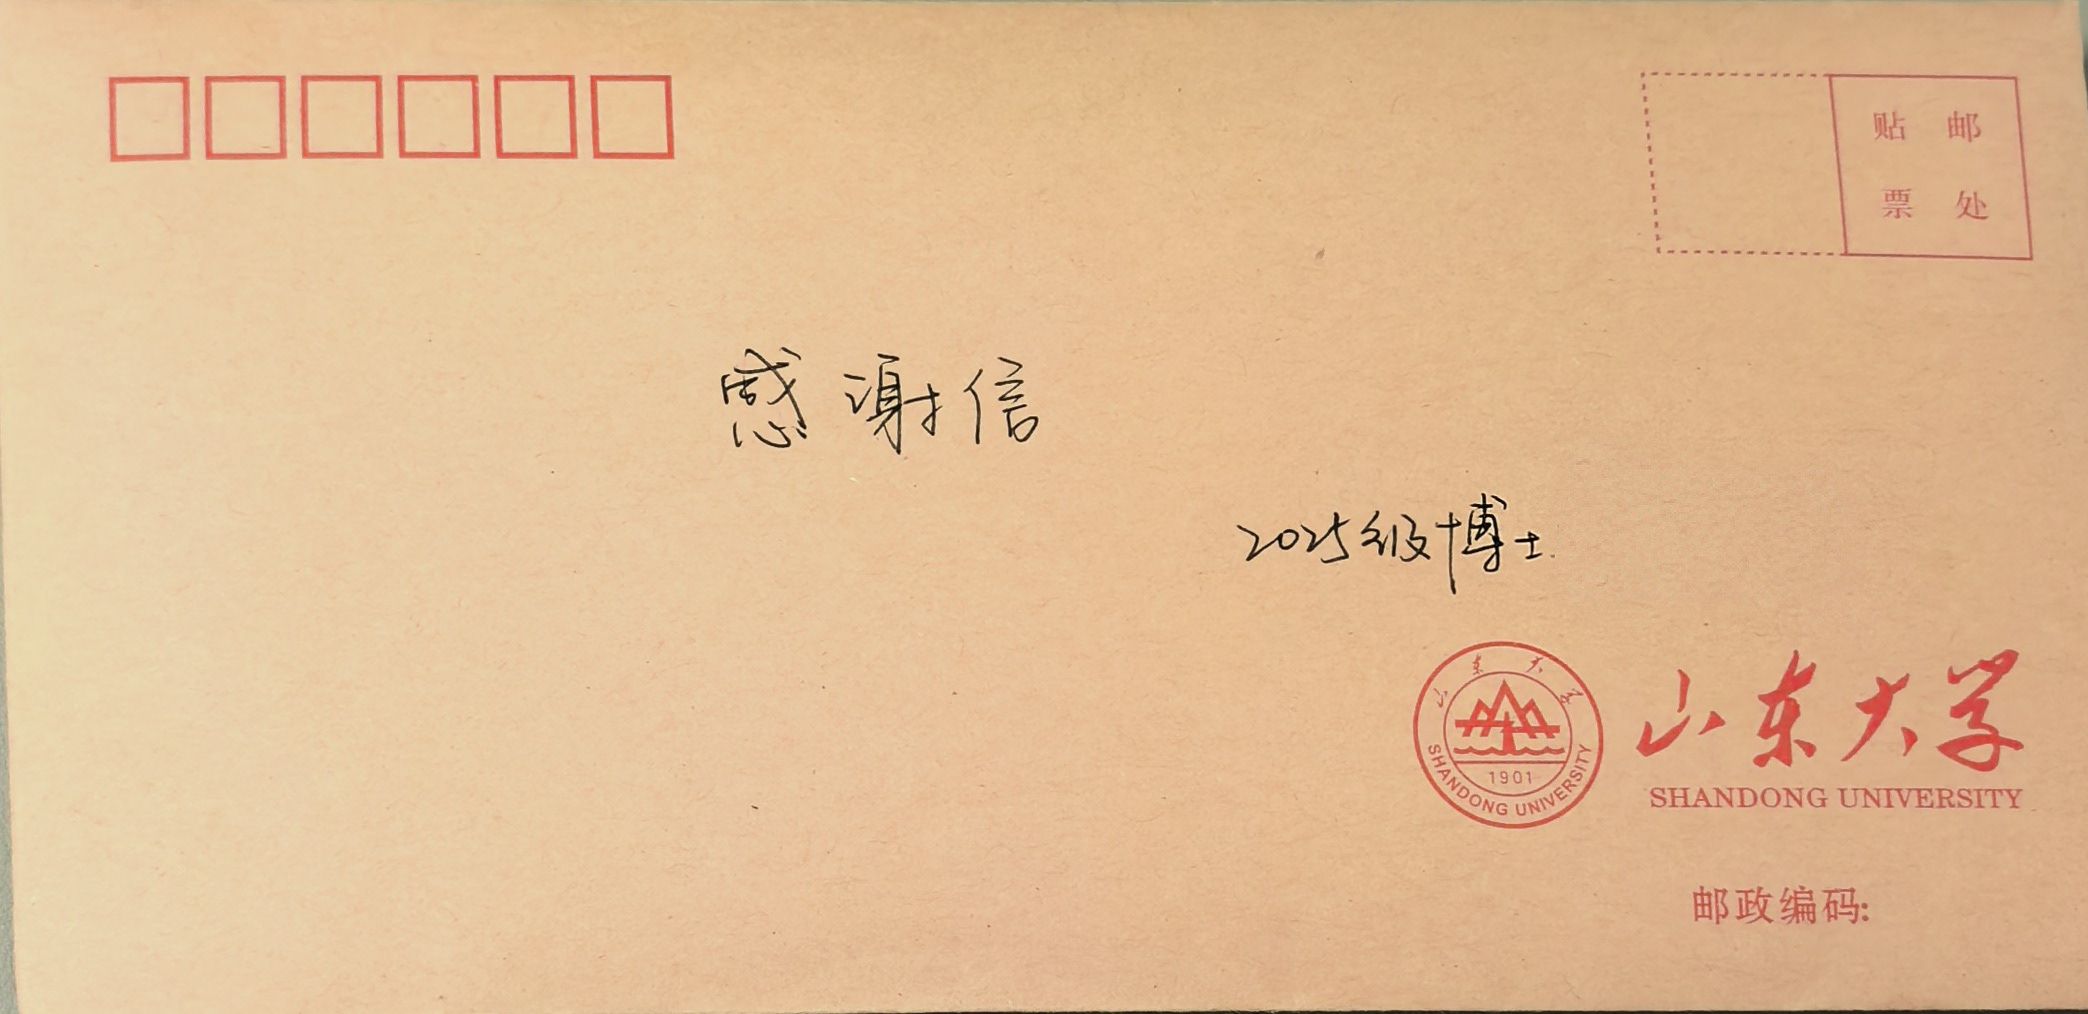 贴邮
票处
感谢信
2025级博士
山东大学
SHANDONG UNIVERSITY
1901
山东大学
SHANDONG UNIVERSITY
邮政编码: